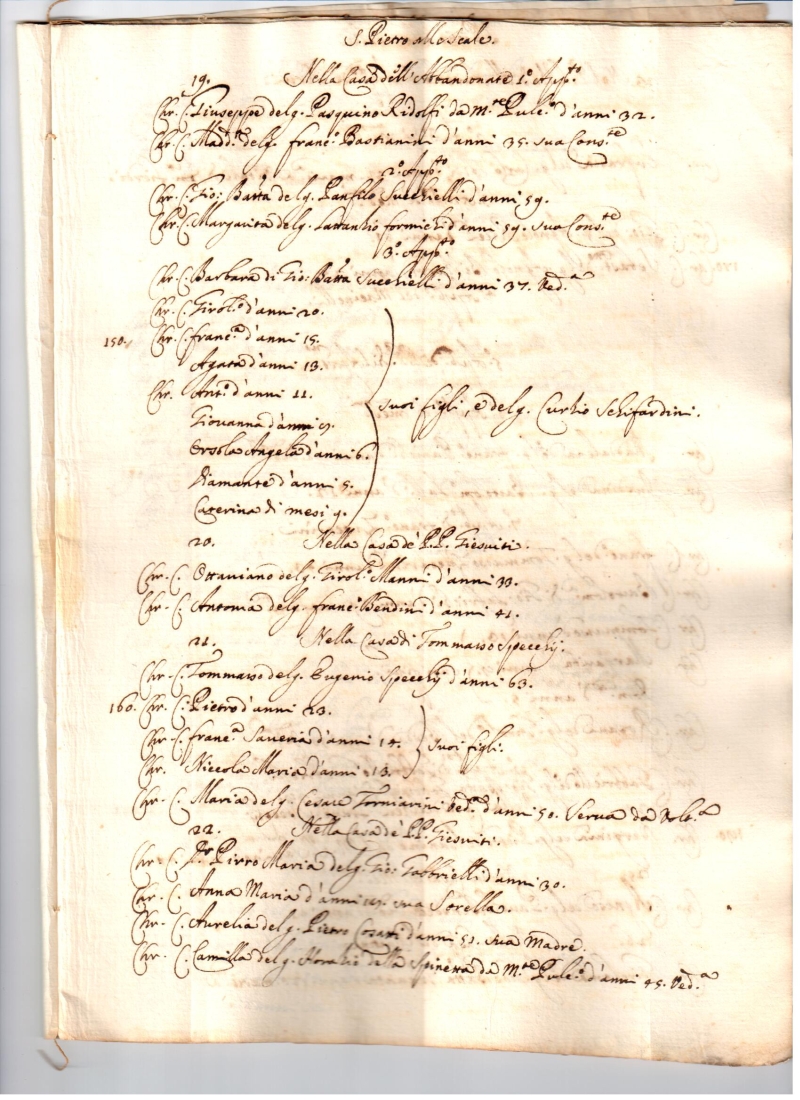 S. Pietro alle Scale.
19. Nella Casa dell'Abbandonate 1.º App.to
Chr. C. Giuseppe del q. Pasquino Ridolfi da M.te Pulc.º d'anni 32.
Chr. C. Madd.a del q. Franc.º Bastianini d'anni 35. sua Cons.te
2.º App.to
Chr. C. Gio: Batta del q. Panfilo Succhielli d'anni 59.
Chr. C. Margarita del q. Lattanzio formichi d'anni 59. sua Cons.te
3.º App.to
Chr. C. Barbara di Gio: Batta Succhielli d'anni 37. Ved.a
Chr. C. Girol.º d'anni 20.
150. Chr. C. franc.a d'anni 15.
Agata d'anni 13.
Chr. Ant.º d'anni 11.
suoi figli, e del q. Curzio Schifardini.
Giovanna d'anni 9.
Orsola Angela d'anni 6.
Diamante d'anni 5.
Caterina di mesi 9.
20. Nella Casa de' P.P. Giesuiti.
Chr. C. Ottaviano del q. Girol.º Manni d'anni 33.
Chr. C. Antonia del q. franc.º Bendini d'anni 41.
21. Nella Casa di Tommaso Specchij.
Chr. C. Tommaso del q. Eugenio Specchij d'anni 63.
160. Chr. C. Pietro d'anni 23.
Chr. C. franc.a Saveria d'anni 14. suoi figli.
Chr. Niccola Maria d'anni 13.
Chr. C. Maria del q. Cesare Ved.a d'anni 50. Serva da Vol.a
22. Nella Casa de' P.P. Giesuiti.
Chr. C. Pirro Maria del q. Gio: Gabbrielli d'anni 30.
Chr. C. Anna Maria d'anni sua Sorella.
Chr. C. Aurelia del q. Pietro Cosatti d'anni 51. sua Madre.
Chr. C. Camilla del q. Horatio della Spinetta da M.te Pulc.º d'anni 45. Ved.a